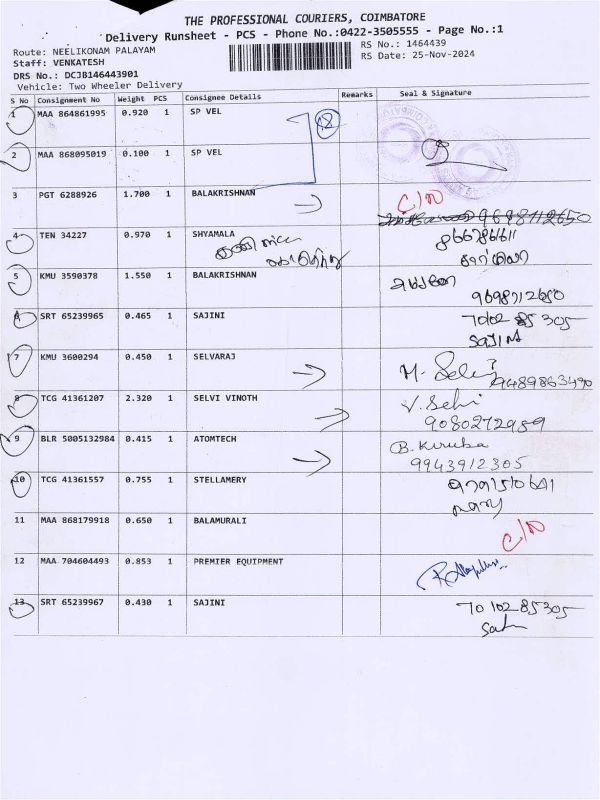 THE PROFESSIONAL COURIERS, COIMBATORE
Delivery Runsheet - PCS - Phone No.:0422-3505555 - Page No.:1
Route: NEELIKONAM PALAYAM RS No.: 1464439
Staff: VENKATESH RS Date: 25-Nov-2024
DRS No.: DCJB146443901
Vehicle: Two Wheeler Delivery
S No Consignment No Weight PCS Consignee Details Remarks Seal & Signature
1 MAA 864861995 0.920 1 SP VEL
2 MAA 868095019 0.100 1 SP VEL
3 PGT 6288926 1.700 1 BALAKRISHNAN C/N
4 TEN 34227 0.970 1 SHYAMALA
5 KMU 3590378 1.550 1 BALAKRISHNAN
9698112650
SRT 65239965 0.465 1 SAJINI 70102 85 305
SAJINI
7 KMU 3600294 0.450 1 SELVARAJ 9489863490
8 TCG 41361207 2.320 1 SELVI VINOTH V. Selvi
9080272989
9 BLR 5005132984 0.415 1 ATOMTECH B. Kiruba
9943912305
10 TCG 41361557 0.755 1 STELLAMERY
11 MAA 868179918 0.650 1 BALAMURALI C/N
12 MAA 704604493 0.853 1 PREMIER EQUIPMENT
13 SRT 65239967 0.430 1 SAJINI 70102 85305